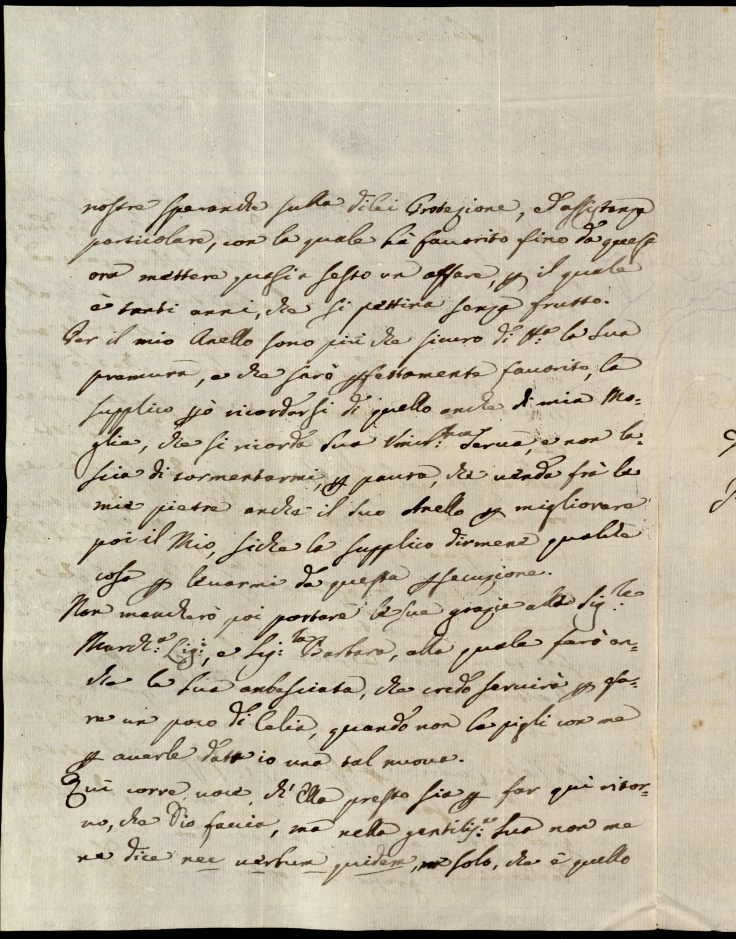 nostre speranze sulla di lei Protezione, ed assistenza
particolare, con la quale ha favorito fino da quest
ora mettere quasi a sesto un affare, p il quale
è tanti anni, che si pettina senza frutto.
Per il mio Anello sono più che sicuro di tta la Sua
premura, e che sarò pfettamente favorito, la
supplico pò ricordarsi di quello anche di mia Mo-
glie, che si ricorda Sua Serva, e non la-
scia di tormentarmi, p paura, che venda frà le
mie pietre anche il Suo Anello p migliorare
poi il Mio, siche la supplico dirmene qualche
cosa p levarmi da questa psecuzione.
Non mancherò poi portare le Sue grazie alla Sig.ra
March.a e Sig.ra Barbara, alla quale farò an-
che la Sua ambasciata, che credo servirà p
re un poco di celia, quando non la pigli con me
p averle dato io una tal nuova.
Quì corre voce, ch'Ella presto sia p far quì ritor-
no, che Dio faccia, mà nella gentilis.a Sua non me
ne dice nec verbum quidem, solo, che è quello